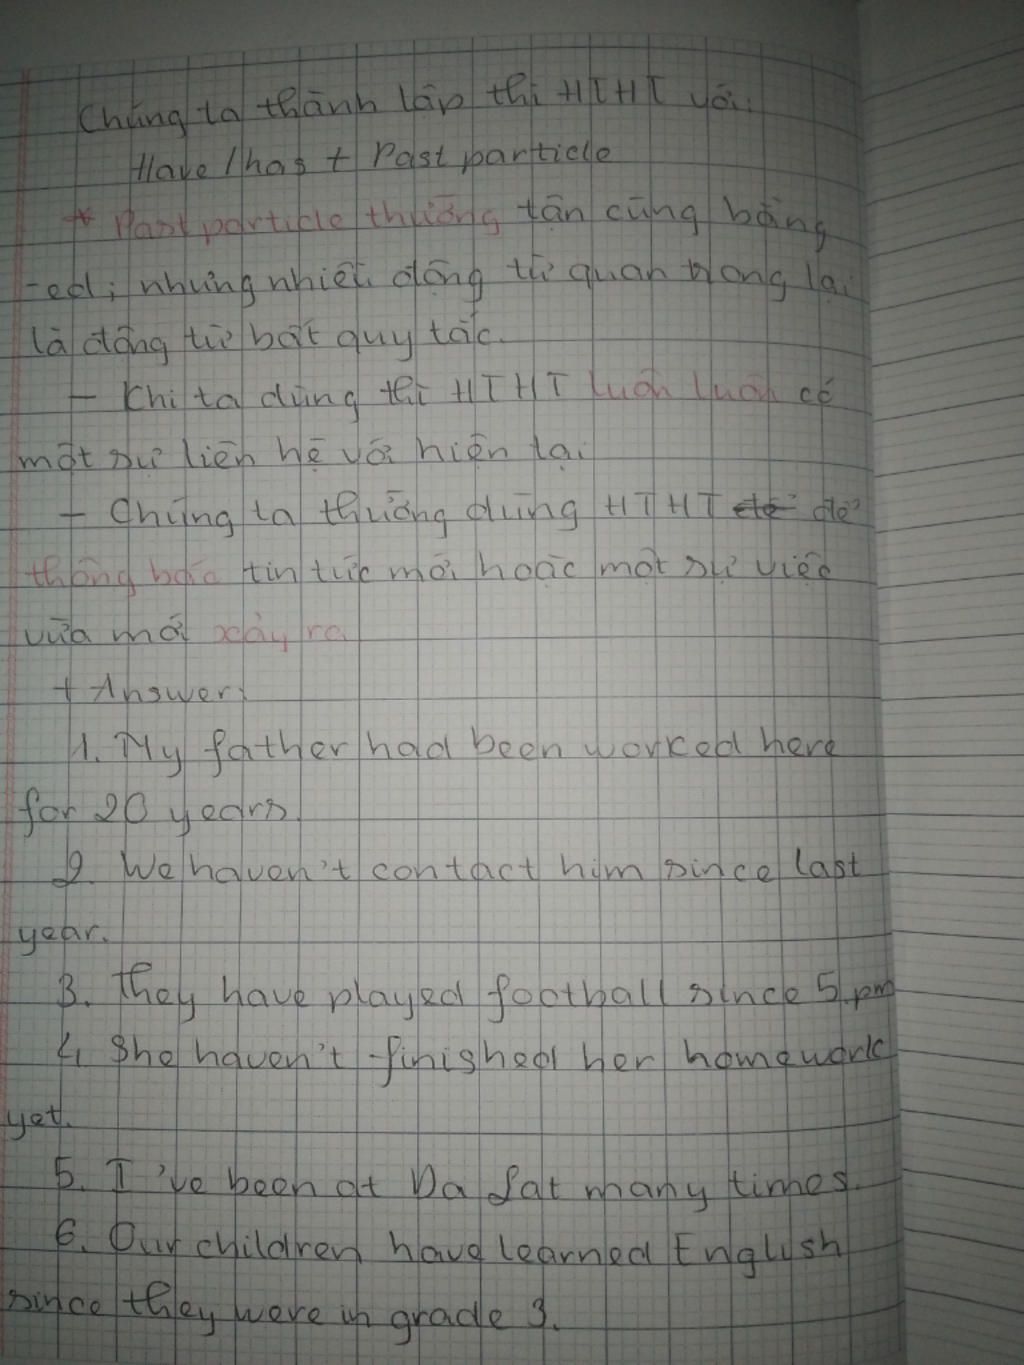 Chúng ta thành lập thì HTHT với:
Have/has + Past particle
* Past particle thường tận cùng bằng
-ed; nhưng nhiều động từ quan trọng lại
là động từ bất quy tắc.
- Khi ta dùng thì HTHT luôn luôn có
một sự liên hệ với hiện tại
- Chúng ta thường dùng HTHT để để
thông báo tin tức mới hoặc một sự việc
vừa mới xảy ra
+ Answer:
1. My father had been worked here
for 20 years.
2. We haven't contact him since last
year.
3. They have played football since 5.pm
4. She haven't finished her homework
yet.
5. I've been at Da Lat many times.
6. Our children have learned English
since they were in grade 3.